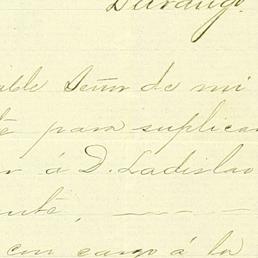 Durango.
able Señor de mi
te para suplicar
r á D. Ladislao
ente,
con cargo á la